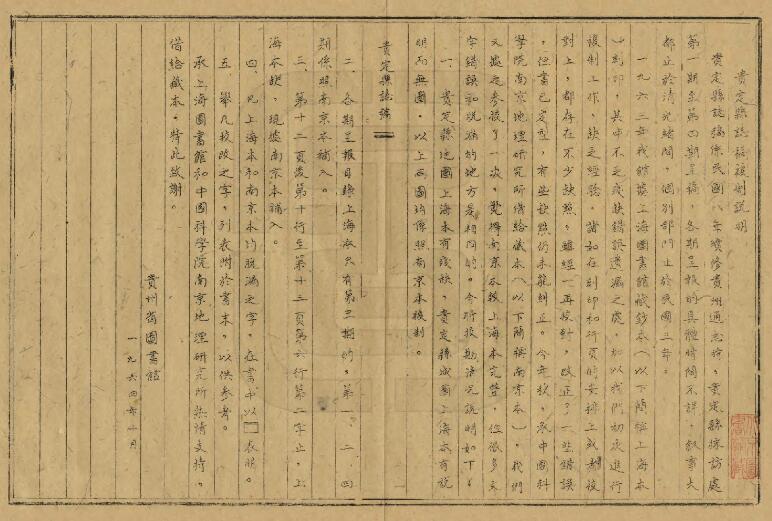 貴定縣誌稿複制説明
貴定縣誌稿係民国八年續修貴州通志時，貴定縣採訪處
第一期至第四期呈稿，各期呈報的具體時間不詳，叙事大
都止於清光緒間，個别部門止於民國三年。
一九六二年我館據上海图書館藏鈔本（以下簡稱上海本
）刻印，其中不乏殘缺錯訛遺漏之處，加以我們初次進行
複制工作，缺乏經驗，諸如在刻印和行頁的安排上或者校
對上，都存在不少缺點，雖經一再校對，改正了一些錯誤
，但書已定型，有些缺點仍未能糾正。今年秋，承中國科
學院南京地理研究所借給藏本（以下簡稱南京本），我們
又據之參校了一次，覺得南京本較上海本完整，但很多文
字錯誤和脱漏的地方是相同的。今將校勘情况説明如下：
一、貴定縣地圖上海本有殘缺，貴定縣城圖上海本有説
明而無圖，以上兩圖均係照南京本複制。
貴定縣誌稿
二、各期呈報目錄上海本只有第三期的，第一、二、四
期係照南京本補入。
三、第十二頁後第十行至第十三頁第六行第二字止，上
海本缺，現據南京本補入。
四、凡上海本和南京本均脱漏之字，在書中以□表明。
五、舉凡校改之字，列表附於書末，以供參考。
承上海圖書館和中國科學院南京地理研究所熱情支持，
借給藏本，特此致謝。
貴州省圖書館
一九六四年十月